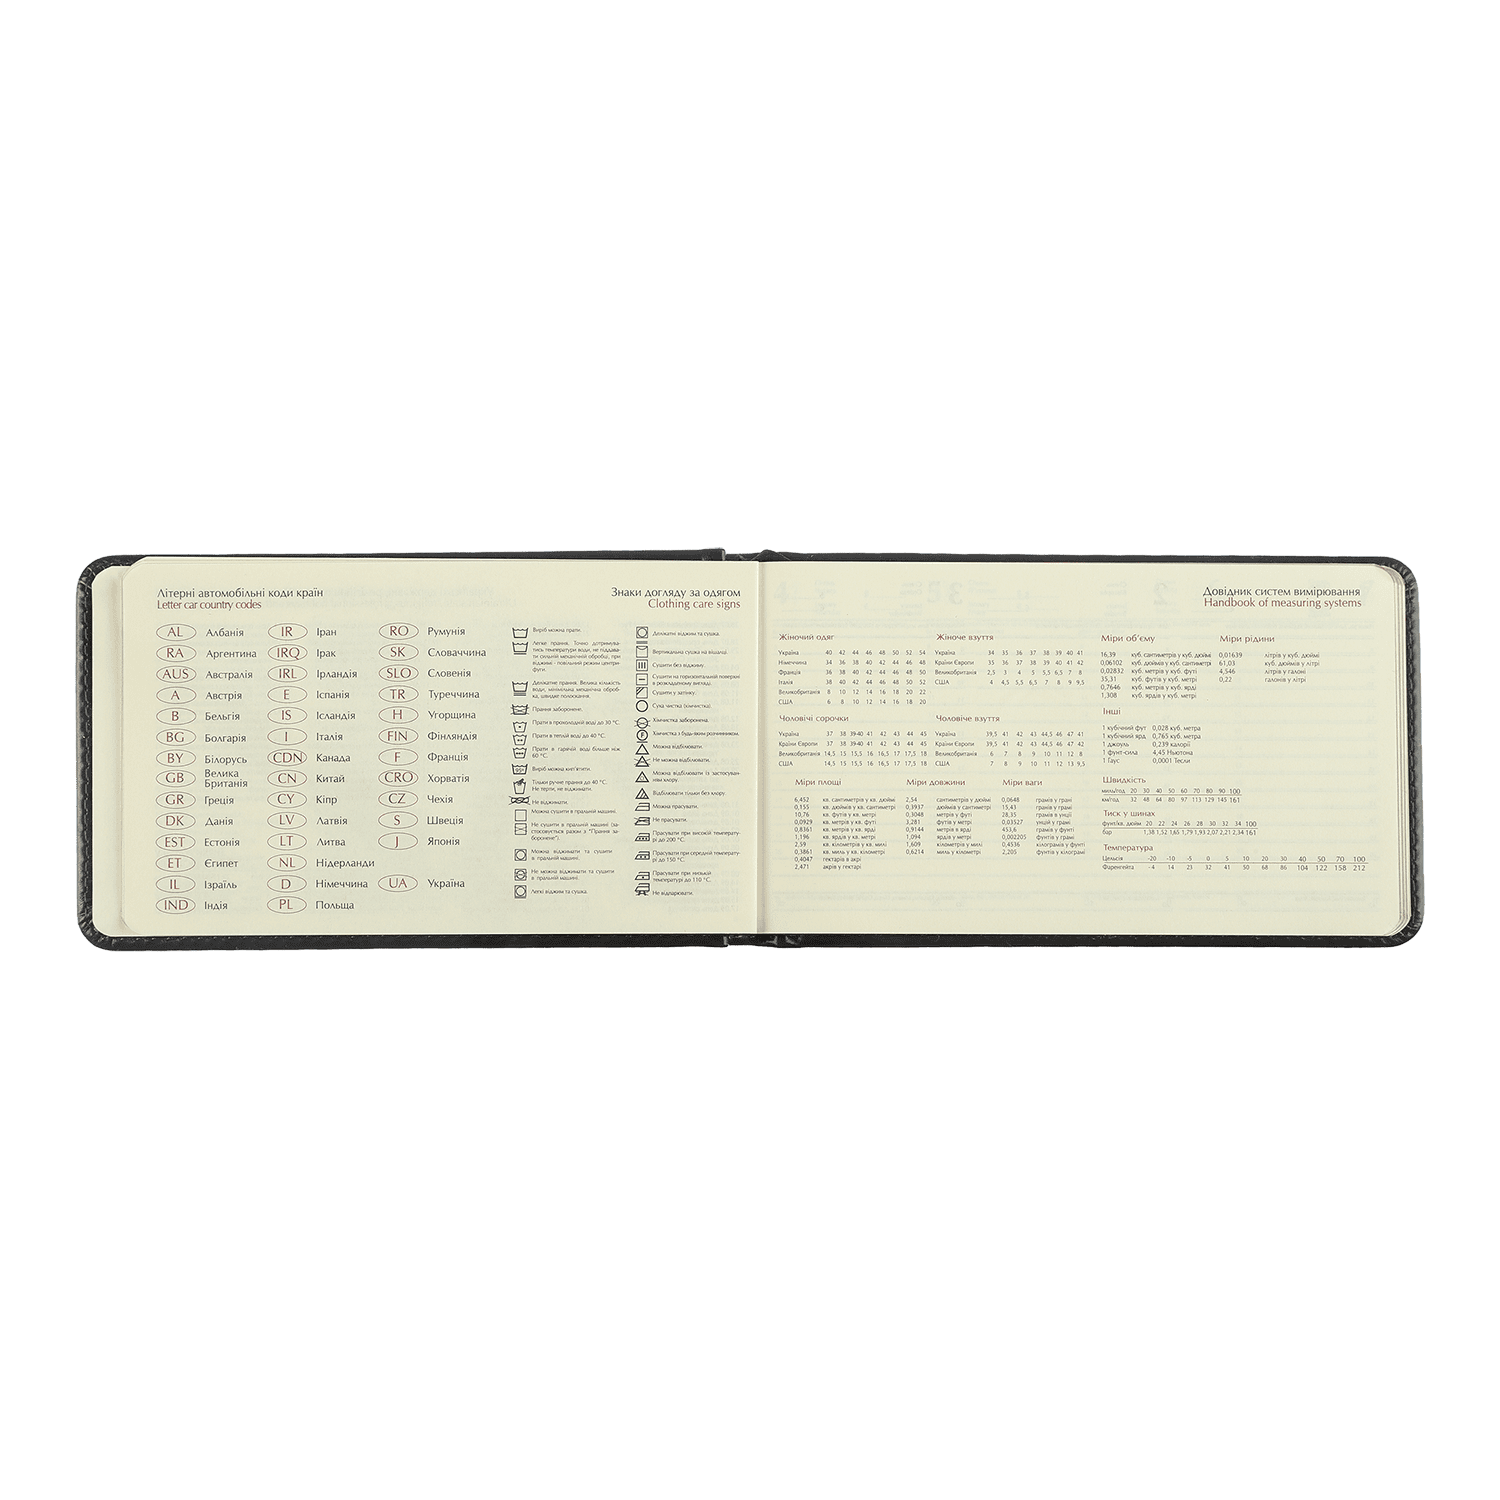 Літерні автомобільні коди країн
Letter car country codes
AL Албанія
RA Аргентина
AUS Австралія
A Австрія
B Бельгія
BG Болгарія
BY Білорусь
GB Велика
Британія
GR Греція
DK Данія
EST Естонія
ET Єгипет
IL Ізраїль
IND Індія
IR Іран
IRQ Ірак
IRL Ірландія
E Іспанія
IS Ісландія
I Італія
CDN Канада
CN Китай
CY Кіпр
LV Латвія
LT Литва
NL Нідерланди
D Німеччина
PL Польща
RO Румунія
SK Словаччина
SLO Словенія
TR Туреччина
H Угорщина
FIN Фінляндія
F Франція
CRO Хорватія
CZ Чехія
S Швеція
J Японія
UA Україна
Знаки догляду за одягом
Clothing care signs
Виріб можна прати.
Легке прання. Точно дотримува-
тись температури води, не піддава-
ти сильній механічній обробці, при
віджимі - повільний режим центри-
фуги.
Делікатне прання. Велика кількість
води, мінімальна механічна оброб-
ка, швидке полоскання.
Прання заборонене.
Прати в прохолодній воді до 30 °С.
Прати в теплій воді до 40 °С.
Прати в гарячій воді більше ніж
60 °С.
Виріб можна кип'ятити.
Тільки ручне прання до 40 °С.
Не терти, не віджимати.
Не віджимати.
Можна сушити в пральній машині.
Не сушити в пральній машині (за-
стосовується разом з "Прання за-
боронене").
Можна віджимати та сушити
в пральній машині.
Не можна віджимати та сушити
в пральній машині.
Легкі віджим та сушка.
Делікатні віджим та сушка.
Вертикальна сушка на вішалці.
Сушити без віджиму.
Сушити на горизонтальній поверхні
в розкладеному вигляді.
Сушити у затінку.
Суха чистка (хімчистка).
Хімчистка заборонена.
Хімчистка з будь-яким розчинником.
Можна відбілювати.
Не можна відбілювати.
Можна відбілювати із застосуван-
ням хлору.
Відбілювати тільки без хлору.
Можна прасувати.
Не прасувати.
Прасувати при високій температу-
рі до 200 °С.
Прасувати при середній температу-
рі до 150 °С.
Прасувати при низькій
температурі до 110 °С.
Не відпарювати.
Довідник систем вимірювання
Handbook of measuring systems
Жіночий одяг
Україна 40 42 44 46 48 50 52 54
Німеччина 34 36 38 40 42 44 46 48
Франція 36 38 40 42 44 46 48 50
Італія 38 40 42 44 46 48 50 52
Великобританія 8 10 12 14 16 18 20 22
США 6 8 10 12 14 16 18 20
Жіноче взуття
Україна 34 35 36 37 38 39 40 41
Країни Європи 35 36 37 38 39 40 41 42
Великобританія 2,5 3 4 5 5,5 6,5 7 8
США 4 4,5 5,5 6,5 7 8 9 9,5
Чоловічі сорочки
Україна 37 38 39-40 41 42 43 44 45
Країни Європи 37 38 39-40 41 42 43 44 45
Великобританія 14,5 15 15,5 16 16,5 17 17,5 18
США 14,5 15 15,5 16 16,5 17 17,5 18
Чоловіче взуття
Україна 39,5 41 42 43 44,5 46 47 41
Країни Європи 39,5 41 42 43 44,5 46 47 42
Великобританія 6 7 8 9 10 11 12 8
США 7 8 9 10 11 12 13 9,5
Міри площі
6,452 кв. сантиметрів у кв. дюймі
0,155 кв. дюймів у кв. сантиметрі
10,76 кв. футів у кв. метрі
0,0929 кв. метрів у кв. футі
0,8361 кв. метрів у кв. ярді
1,196 кв. ярдів у кв. метрі
2,59 кв. кілометрів у кв. милі
0,3861 кв. миль у кв. кілометрі
0,4047 гектарів в акрі
2,471 акрів у гектарі
Міри довжини
2,54 сантиметрів у дюймі
0,3937 дюймів у сантиметрі
0,3048 метрів у футі
3,281 футів у метрі
0,9144 метрів в ярді
1,094 ярдів у метрі
1,609 кілометрів у милі
0,6214 миль у кілометрі
Міри ваги
0,0648 грамів у грані
15,43 гранів у грамі
28,35 грамів в унції
0,03527 унцій у грамі
453,6 грамів у фунті
0,002205 фунтів у грамі
0,4536 кілограмів у фунті
2,205 фунтів у кілограмі
Міри об'єму
16,39 куб. сантиметрів у куб. дюймі
0,06102 куб. дюймів у куб. сантиметрі
0,02832 куб. метрів у куб. футі
35,31 куб. футів у куб. метрі
0,7646 куб. метрів у куб. ярді
1,308 куб. ярдів у куб. метрі
Міри рідини
0,01639 літрів у куб. дюймі
61,03 куб. дюймів у літрі
4,546 літрів у галоні
0,22 галонів у літрі
Інші
1 кубічний фут 0,028 куб. метра
1 кубічний ярд 0,765 куб. метра
1 джоуль 0,239 калорії
1 фунт-сила 4,45 Ньютона
1 Гаус 0,0001 Тесли
Швидкість
миль/год 20 30 40 50 60 70 80 90 100
км/год 32 48 64 80 97 113 129 145 161
Тиск у шинах
фунт/кв. дюйм 20 22 24 26 28 30 32 34 100
бар 1,38 1,52 1,65 1,79 1,93 2,07 2,21 2,34 161
Температура
Цельсія -20 -10 -5 0 5 10 20 30 40 50 70 100
Фаренгейта -4 14 23 32 41 50 68 86 104 122 158 212